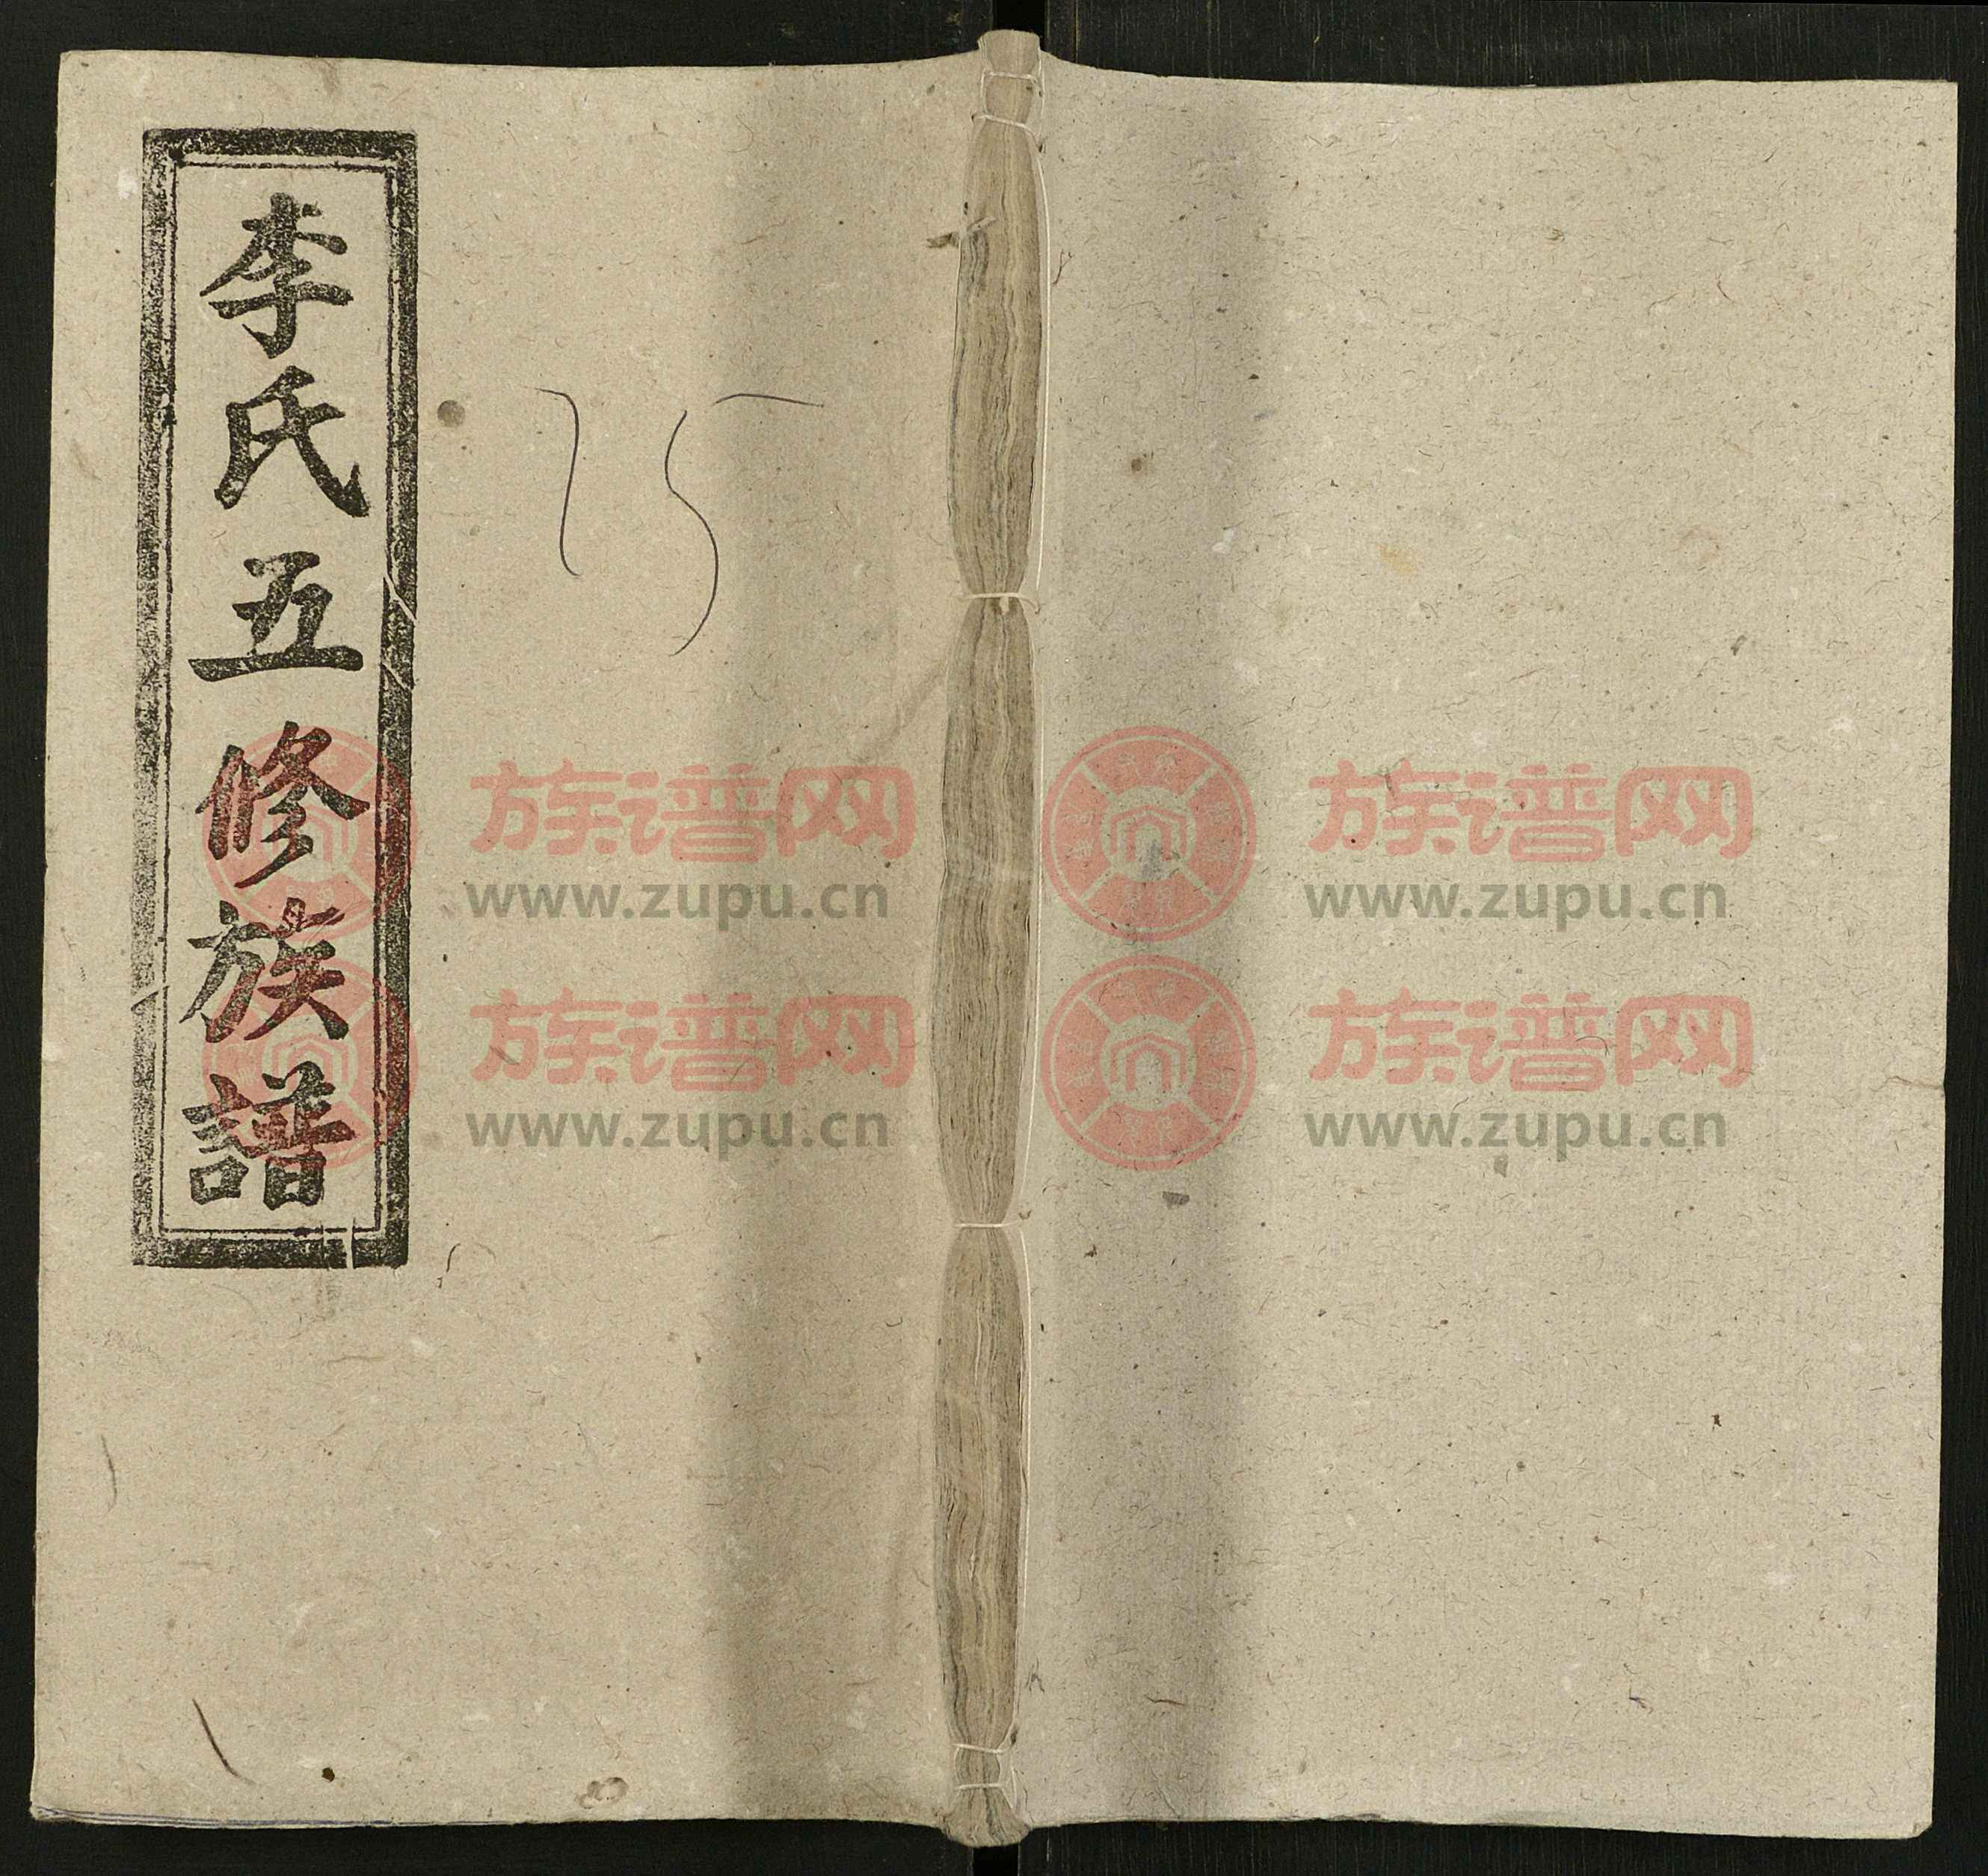 李氏五修族譜
15
族谱网 族谱网
www.zupu.cn www.zupu.cn
族谱网 族谱网
www.zupu.cn www.zupu.cn